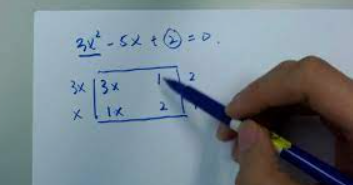 3x² - 5x + 2 = 0.
3x 3x 1 2
x 1x 2